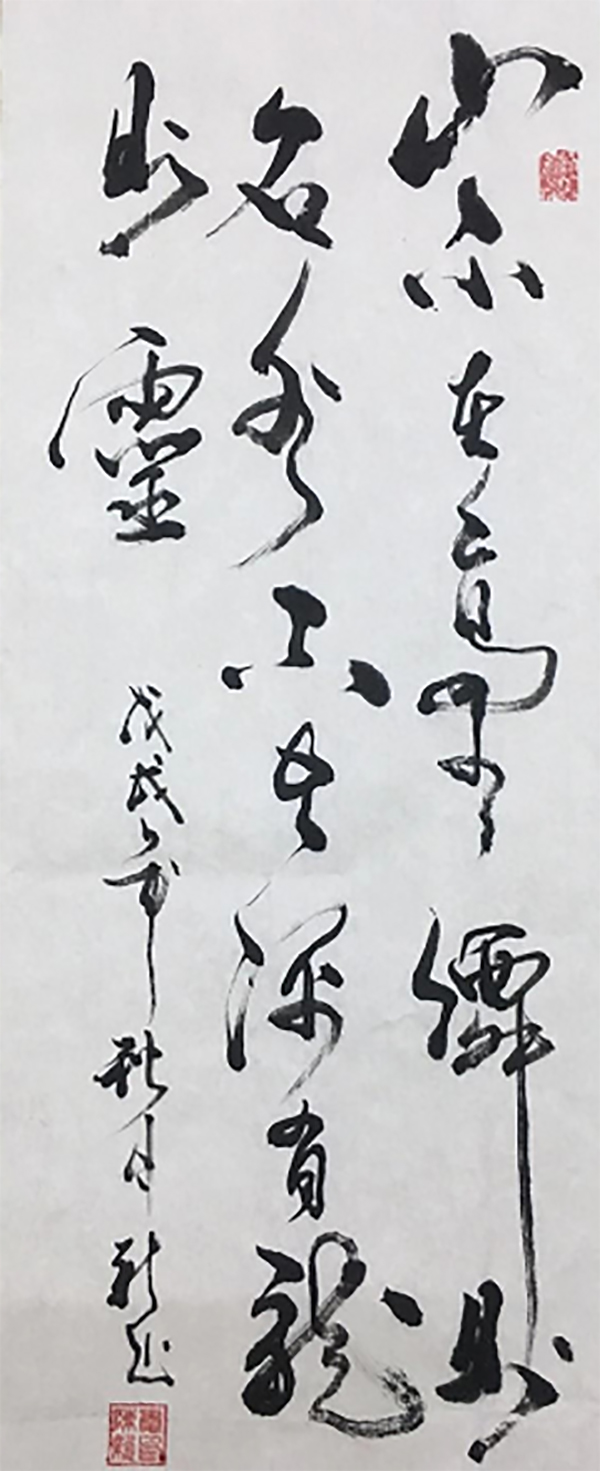 山不在高有僊則
名水不在深有龍
則靈
戊戌年秋月